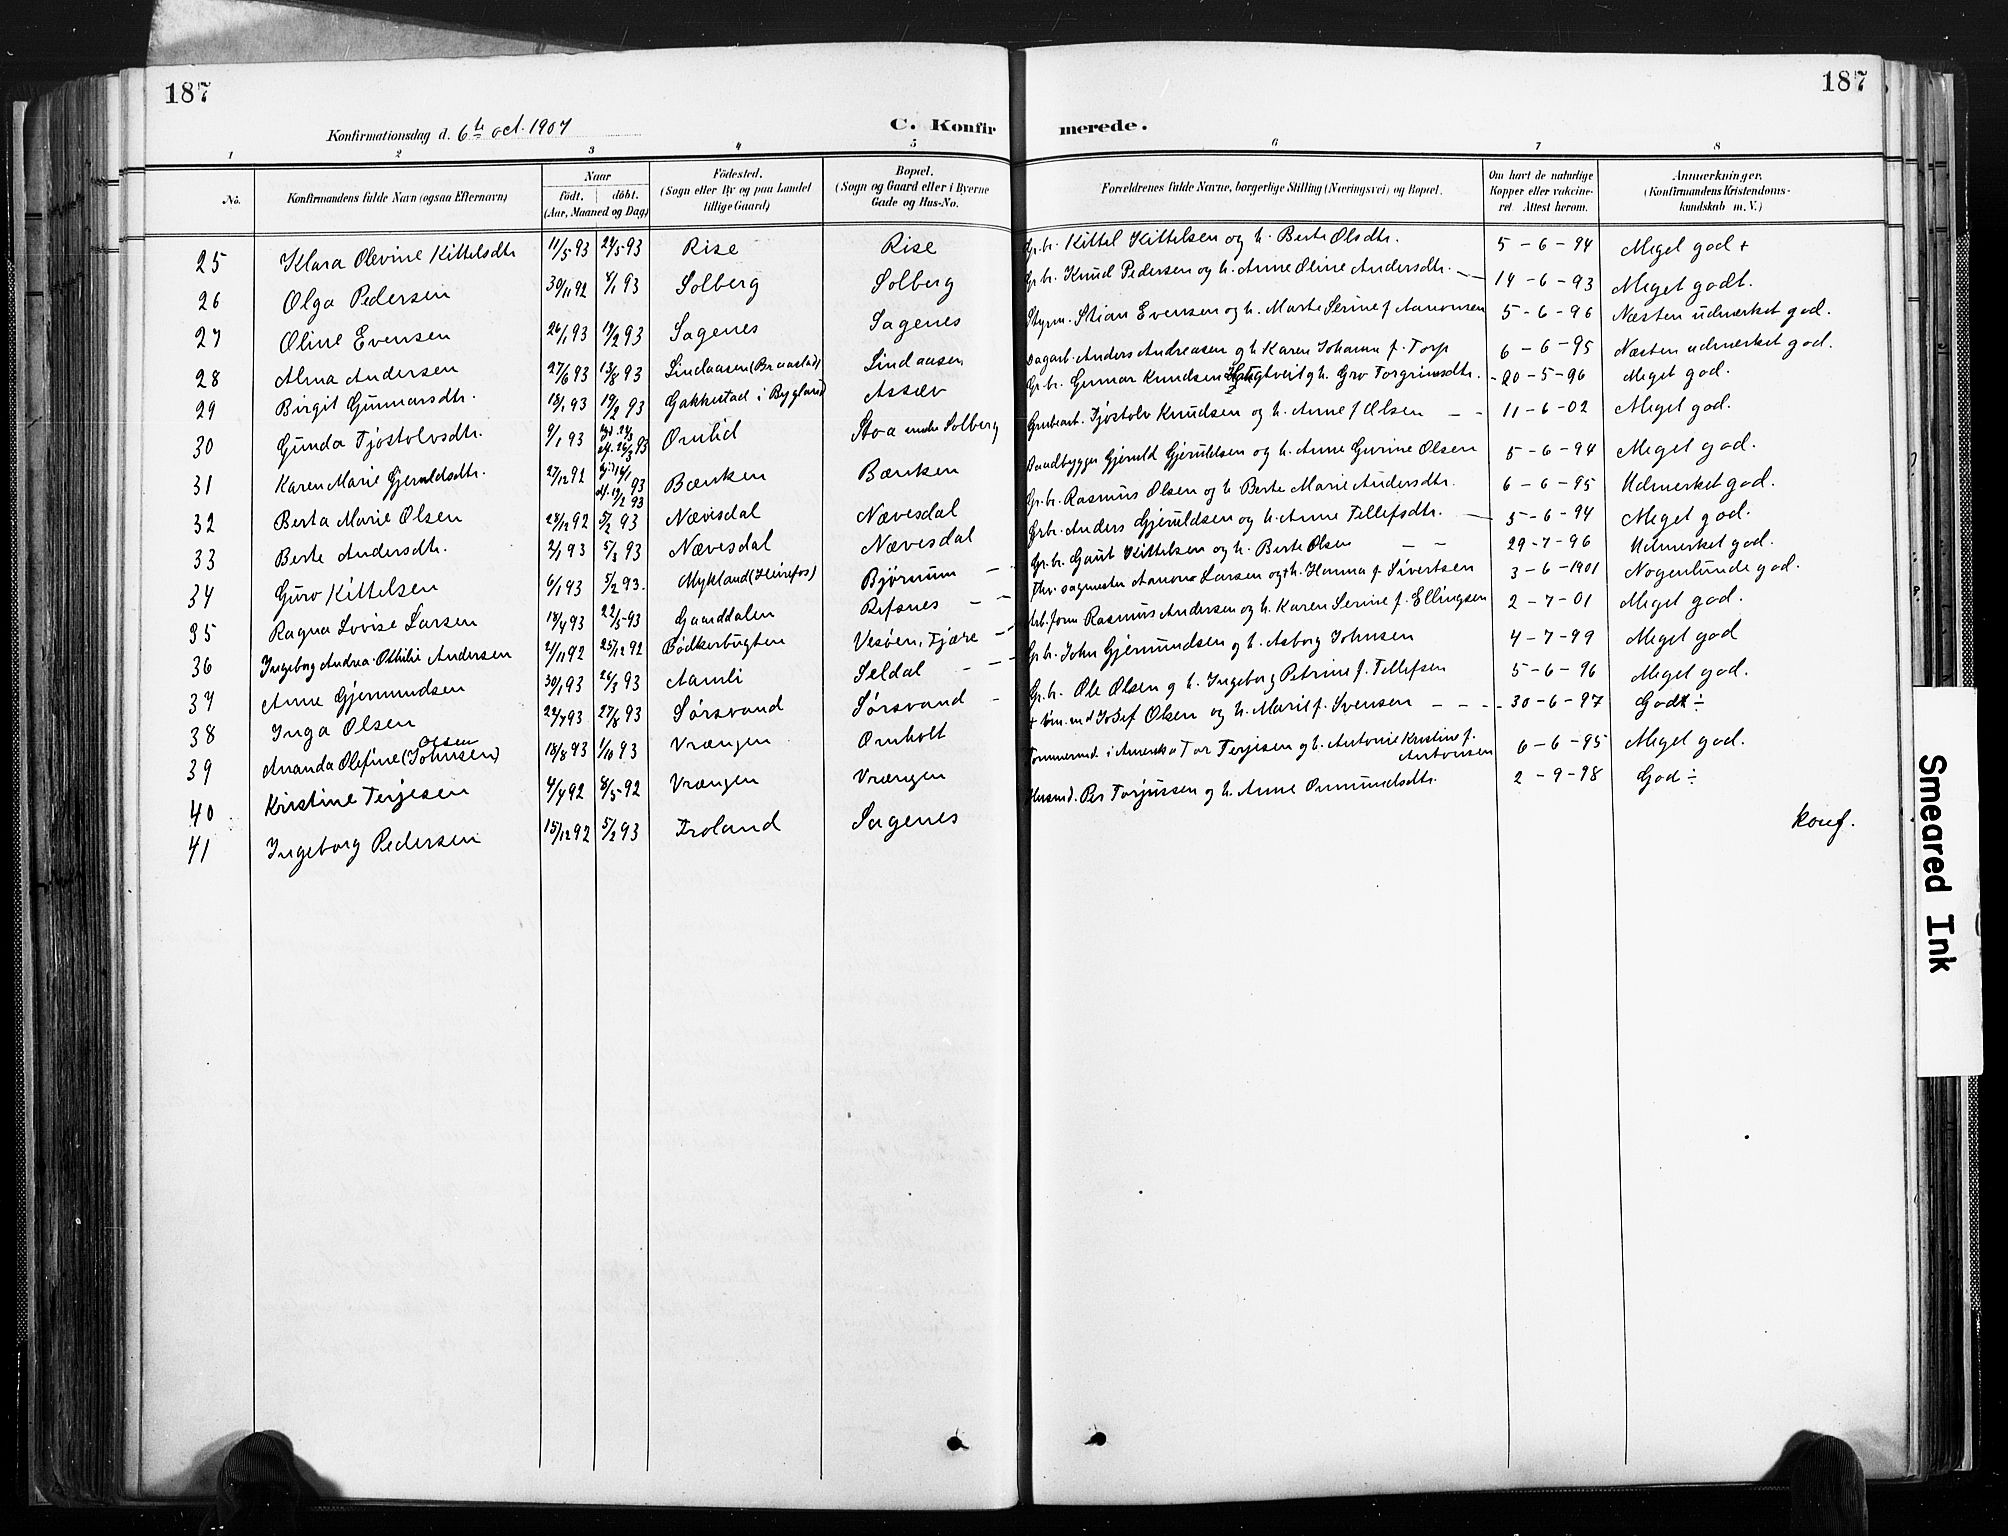 187
187
Konfirmationsdag d. 6te oct. 1907
C. Konfirmerede.
1 2 3 4 5 6 7 8
No. Konfirmandens fulde Navn (ogsaa Efternavn) Naar født. døbt. (Aar, Maaned og Dag) Fødested. (Sogn eller By og paa Landet tillige Gaard) Bopæl. (Sogn og Gaard eller i Byerne Gade og Hus-No. Forældrenes fulde Navne, borgerlige Stilling (Næringsvei) og Bopæl. Om havt de naturlige Kopper eller vakcineret. Attest herom. Anmærkninger. (Konfirmandens Kristendomskundskab m. V.)
25 Klara Olevine Kittelsdtr 11/5 93 24/5 93 Rise Rise Gr.br. Kittel Kittelsen og h. Berte Olsdtr. 5-6-94 Meget god +
26 Olga Pedersen 30/11 92 8/1 93 Solberg Solberg Gr.br. Knud Pedersen og h. Anne Oline Andersdtr. 14-6-93 Meget godt.
27 Oline Evensen 26/1 93 19/2 93 Sagenes Sagenes Styrm. Stian Evensen og h. Marte Serine f. Aanonsen 5-6-96 Næsten udmerket god.
28 Alma Andersen 27/6 93 13/8 93 Lindaasen (Braastad) Lindaasen Dagarb. Anders Andreasen og h. Karen Johanne f. Torp 6-6-95 Næsten udmerket god.
29 Birgit Gunnarsdtr. 18/1 93 19/2 93 Gakkestad i Bygland Assæv Gr.br. Gunnar Knudsen og h. Gro Torgrimsdtr. 20-5-96 Meget god.
30 Gunda Tjostolvsdtr. 9/1 93 26/3 93 Ornlid Stoa under Solberg Grubearb. Tjostolv Knudsen og h. Anne f. Olsen 11-6-02 Meget god.
31 Karen Marie Gjeruldsdtr. 27/12 92 19/2 93 Bænken Bænken Baadbygger Gjeruld Gjeruldsen og h. Anne Gurine Olsen 5-6-94 Meget god.
32 Berta Marie Olsen 28/12 92 5/2 93 Nævisdal Nævesdal Gr.br. Rasmus Olsen og h. Berte Marie Andersdtr. 6-6-95 Udmerket god.
33 Berte Andersdtr. 2/1 93 5/3 93 Nævesdal Nævesdal Grbr. Anders Gjeruldsen og h. Anne Tellefsdtr. 5-6-94 Meget god.
34 Guro Kittelsen 6/1 93 5/2 93. Mykland (Heirefos) Bjørnum Gr.br. Gaut Kittelsen og h. Berte Olsen 29-7-96 Udmerket god.
35 Ragna Lovise Larsen 18/4 93 22/5-93 Gaarddalen Refsnes Fhv. sagmester Aanono Larsen og h. Hanna f. Sivertsen 3-6-1901 Nogenlunde god.
36 Ingeborg Andrea Othilie Andersen 2/11 92 25/12 92 Bødkerbugten Vesøen, Fjære Arb.form Rasmus Andersen og h. Karen Serine f. Ellingsen 2-7-01 Meget god.
37 Anne Gjermundsen 30/1 93 26/3 93 Aamli Seldal Gr.br. John Gjermundsen og h. Asborg Johnsen 4-7-99 Meget god
38 Inga Olsen 22/7 93 27/8 93 Sørsvand Sørsvand Gr.br. Ole Olsen og h. Ingeborg Petrine f. Tellefsen 5-6-96 Meget god.
39 Ananda Olefine (Johnsen) Olsen 18/8 93 1/10 93 Vrængen Ornholt + tøm.md Josef Olsen og h. Marit f. Svensen 30-6-97 Godt ÷
40 Kristine Terjesen 4/4 92 8/5-92 Vrængen Vrængen Tømmermd. i Amerika Tor Terjesen og h. Antonie Kristine f. Antonsen 6-6-95 Meget god.
41 Ingeborg Pedersen 15/12 92 5/2 93 Froland Sagenes Husmd. Per Torjussen og h. Anne Ormundsdtr. 2-9-98 God ÷
konf.
Smeared Ink